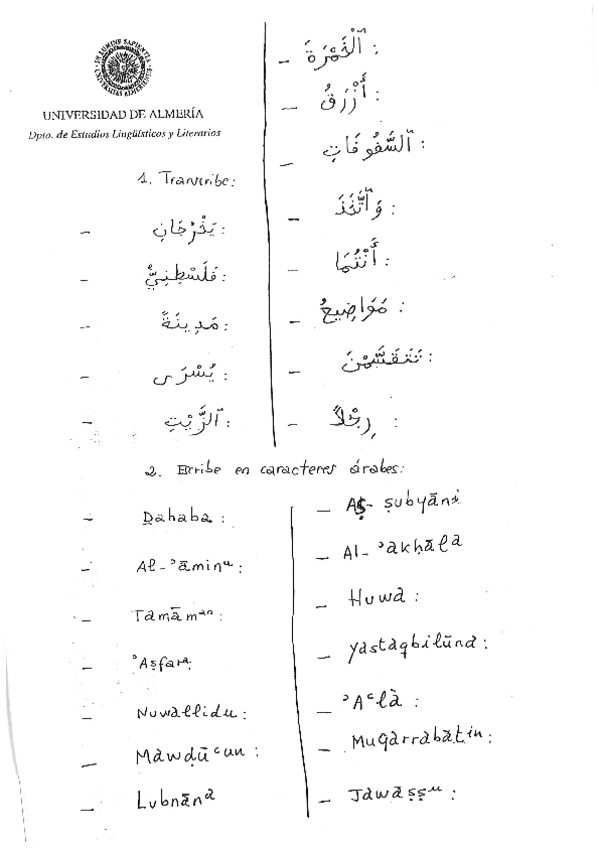 UNIVERSIDAD DE ALMERÍA
Dpto. de Estudios Lingüísticos y Literarios
1. Transcribe:
- يَخْرُجَانِ :
- فَلَسْطِنِيٌّ :
- مَدِينَةً :
- يُسْرَى :
- ٱلزَّيْتِ :
- ٱلْخَمْرَةَ :
- أَزْرَقُ :
- ٱلسَّفُوفَاتِ :
- وَٱتَّخَذَ :
- أَنْتُمَا :
- مَوَاضِيعُ :
- تَتَقَسَّمْنَ :
- رِجْلاً :
2. Escribe en caracteres árabes:
- Ḏahaba :
- Al-ʾāminᵘ :
- Tamāmᵃⁿ :
- ʾAṣfarᵃ :
- Nuwallidu :
- Mawḍūᶜun :
- Lubnānᵃ
- Aṣ-ṣubyānⁱ
- Al-ʾakḥāla
- Huwa :
- Yastaqbilūna :
- ʾAᶜlà :
- Muqarrabātin :
- Jawāṣṣᵘ :